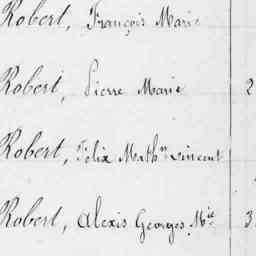 Robert, François Marie
Robert, Pierre Marie 2
Robert, Félix Math.in vincent
Robert, Alexis Georges M.ie 3